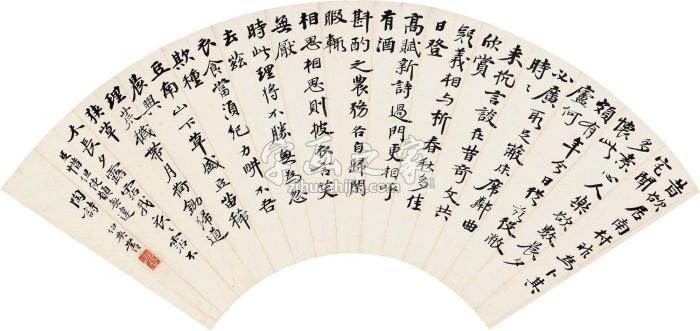 昔欲居南村非為卜其
宅聞
多素心人樂與數晨夕
懷此
頗有年今日從茲役敝
廬何
必廣取足蔽床席鄰曲
時〻
來抗言談在昔奇文共
欣賞
疑義相與析春秋多佳
日登
高賦新詩過門更相呼
有酒
斟酌之農務各自歸閑
暇輒
相思相思則披衣言笑
無厭
時此理將不勝無為忽
去茲
衣食當須紀力畊不吾
欺種
豆南山下草盛豆苗稀
晨興
理荒穢帶月荷鋤歸道
狹草
木長夕露霑我衣〻霑不
足惜但使願無違
陶詩 伯英書
字画之家
zihuazhijia.com